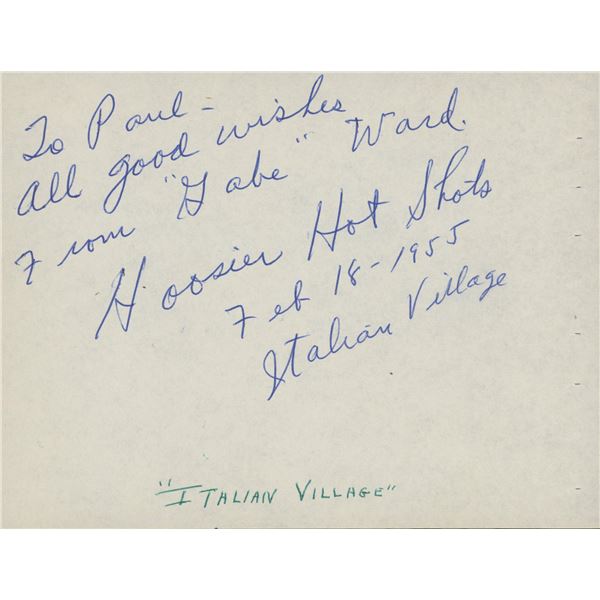 To Paul -
All good wishes
From "Gabe" Ward.
Hoosier Hot Shots
Feb 18-1955
Italian Village
"ITALIAN VILLAGE"